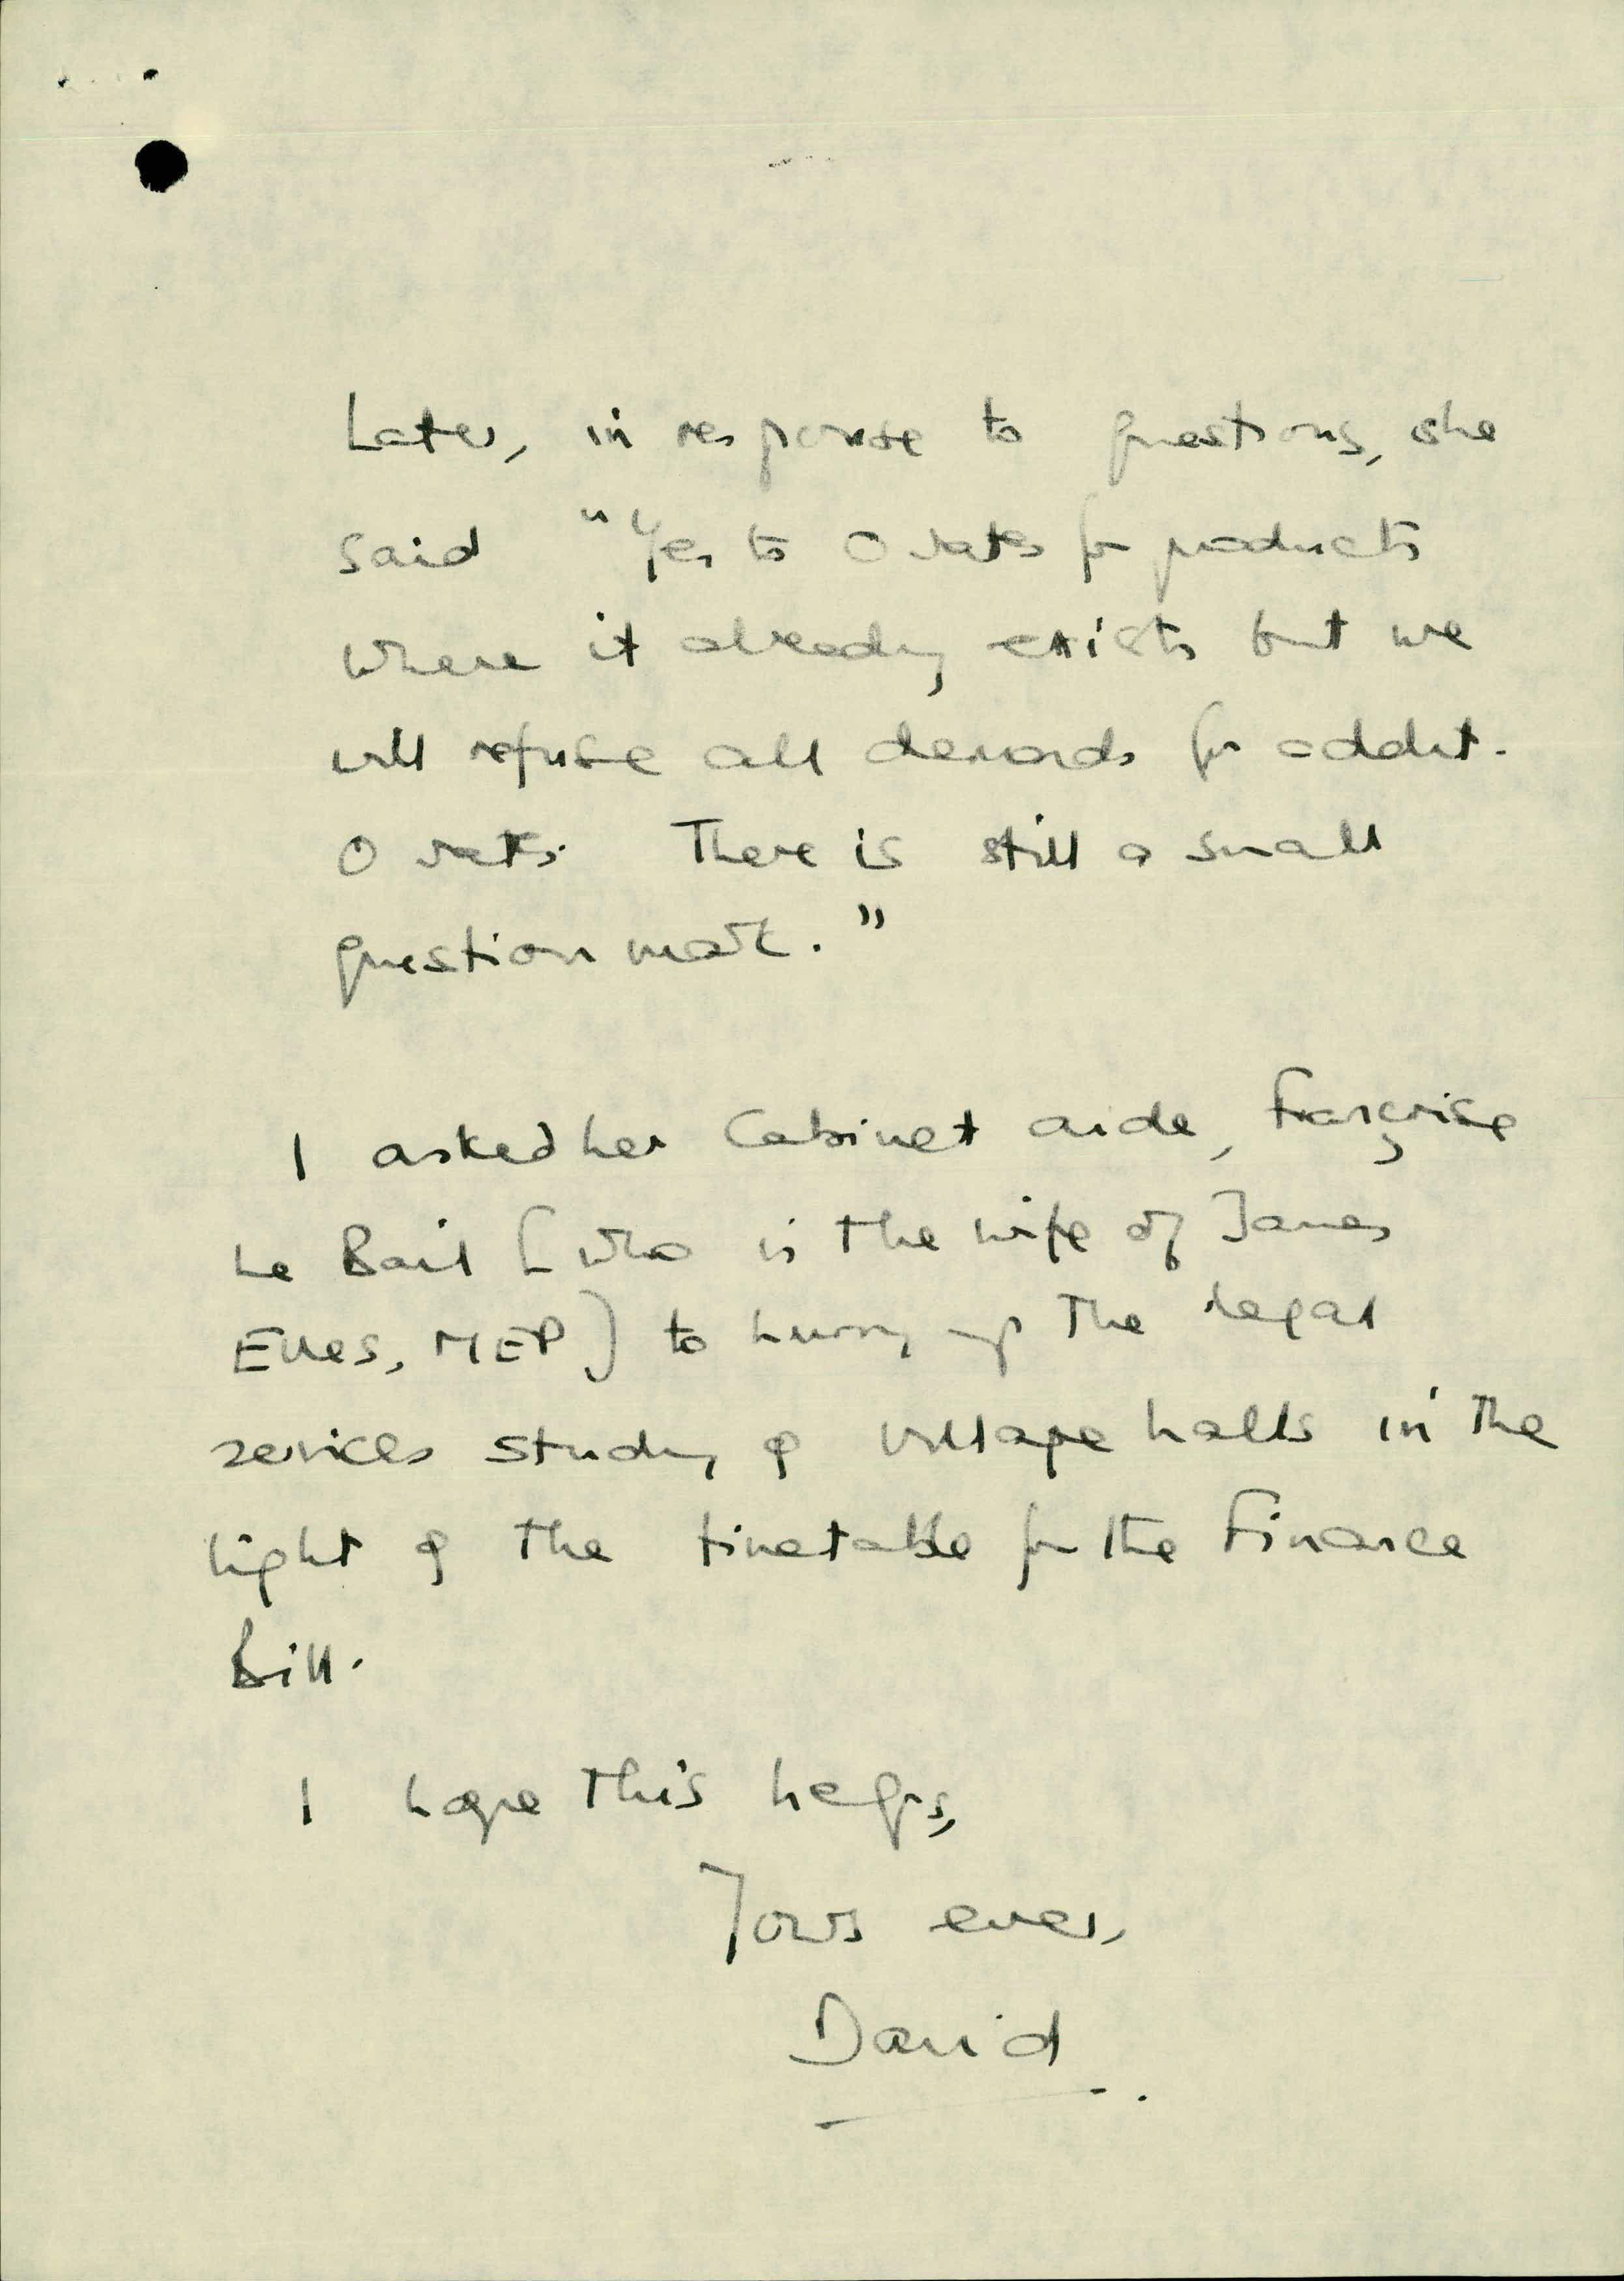 Later, in response to questions, she
said "Yes to 0 rates for products
where it already exists but we
will refuse all demands for addit.
0 rates. There is still a small
question mark."
I asked her Cabinet aide, Françoise
Le Bail [who is the wife of James
Elles, MEP] to hurry up the legal
services study of village halls in the
light of the timetable for the Finance
Bill.
I hope this helps,
Yours ever,
David